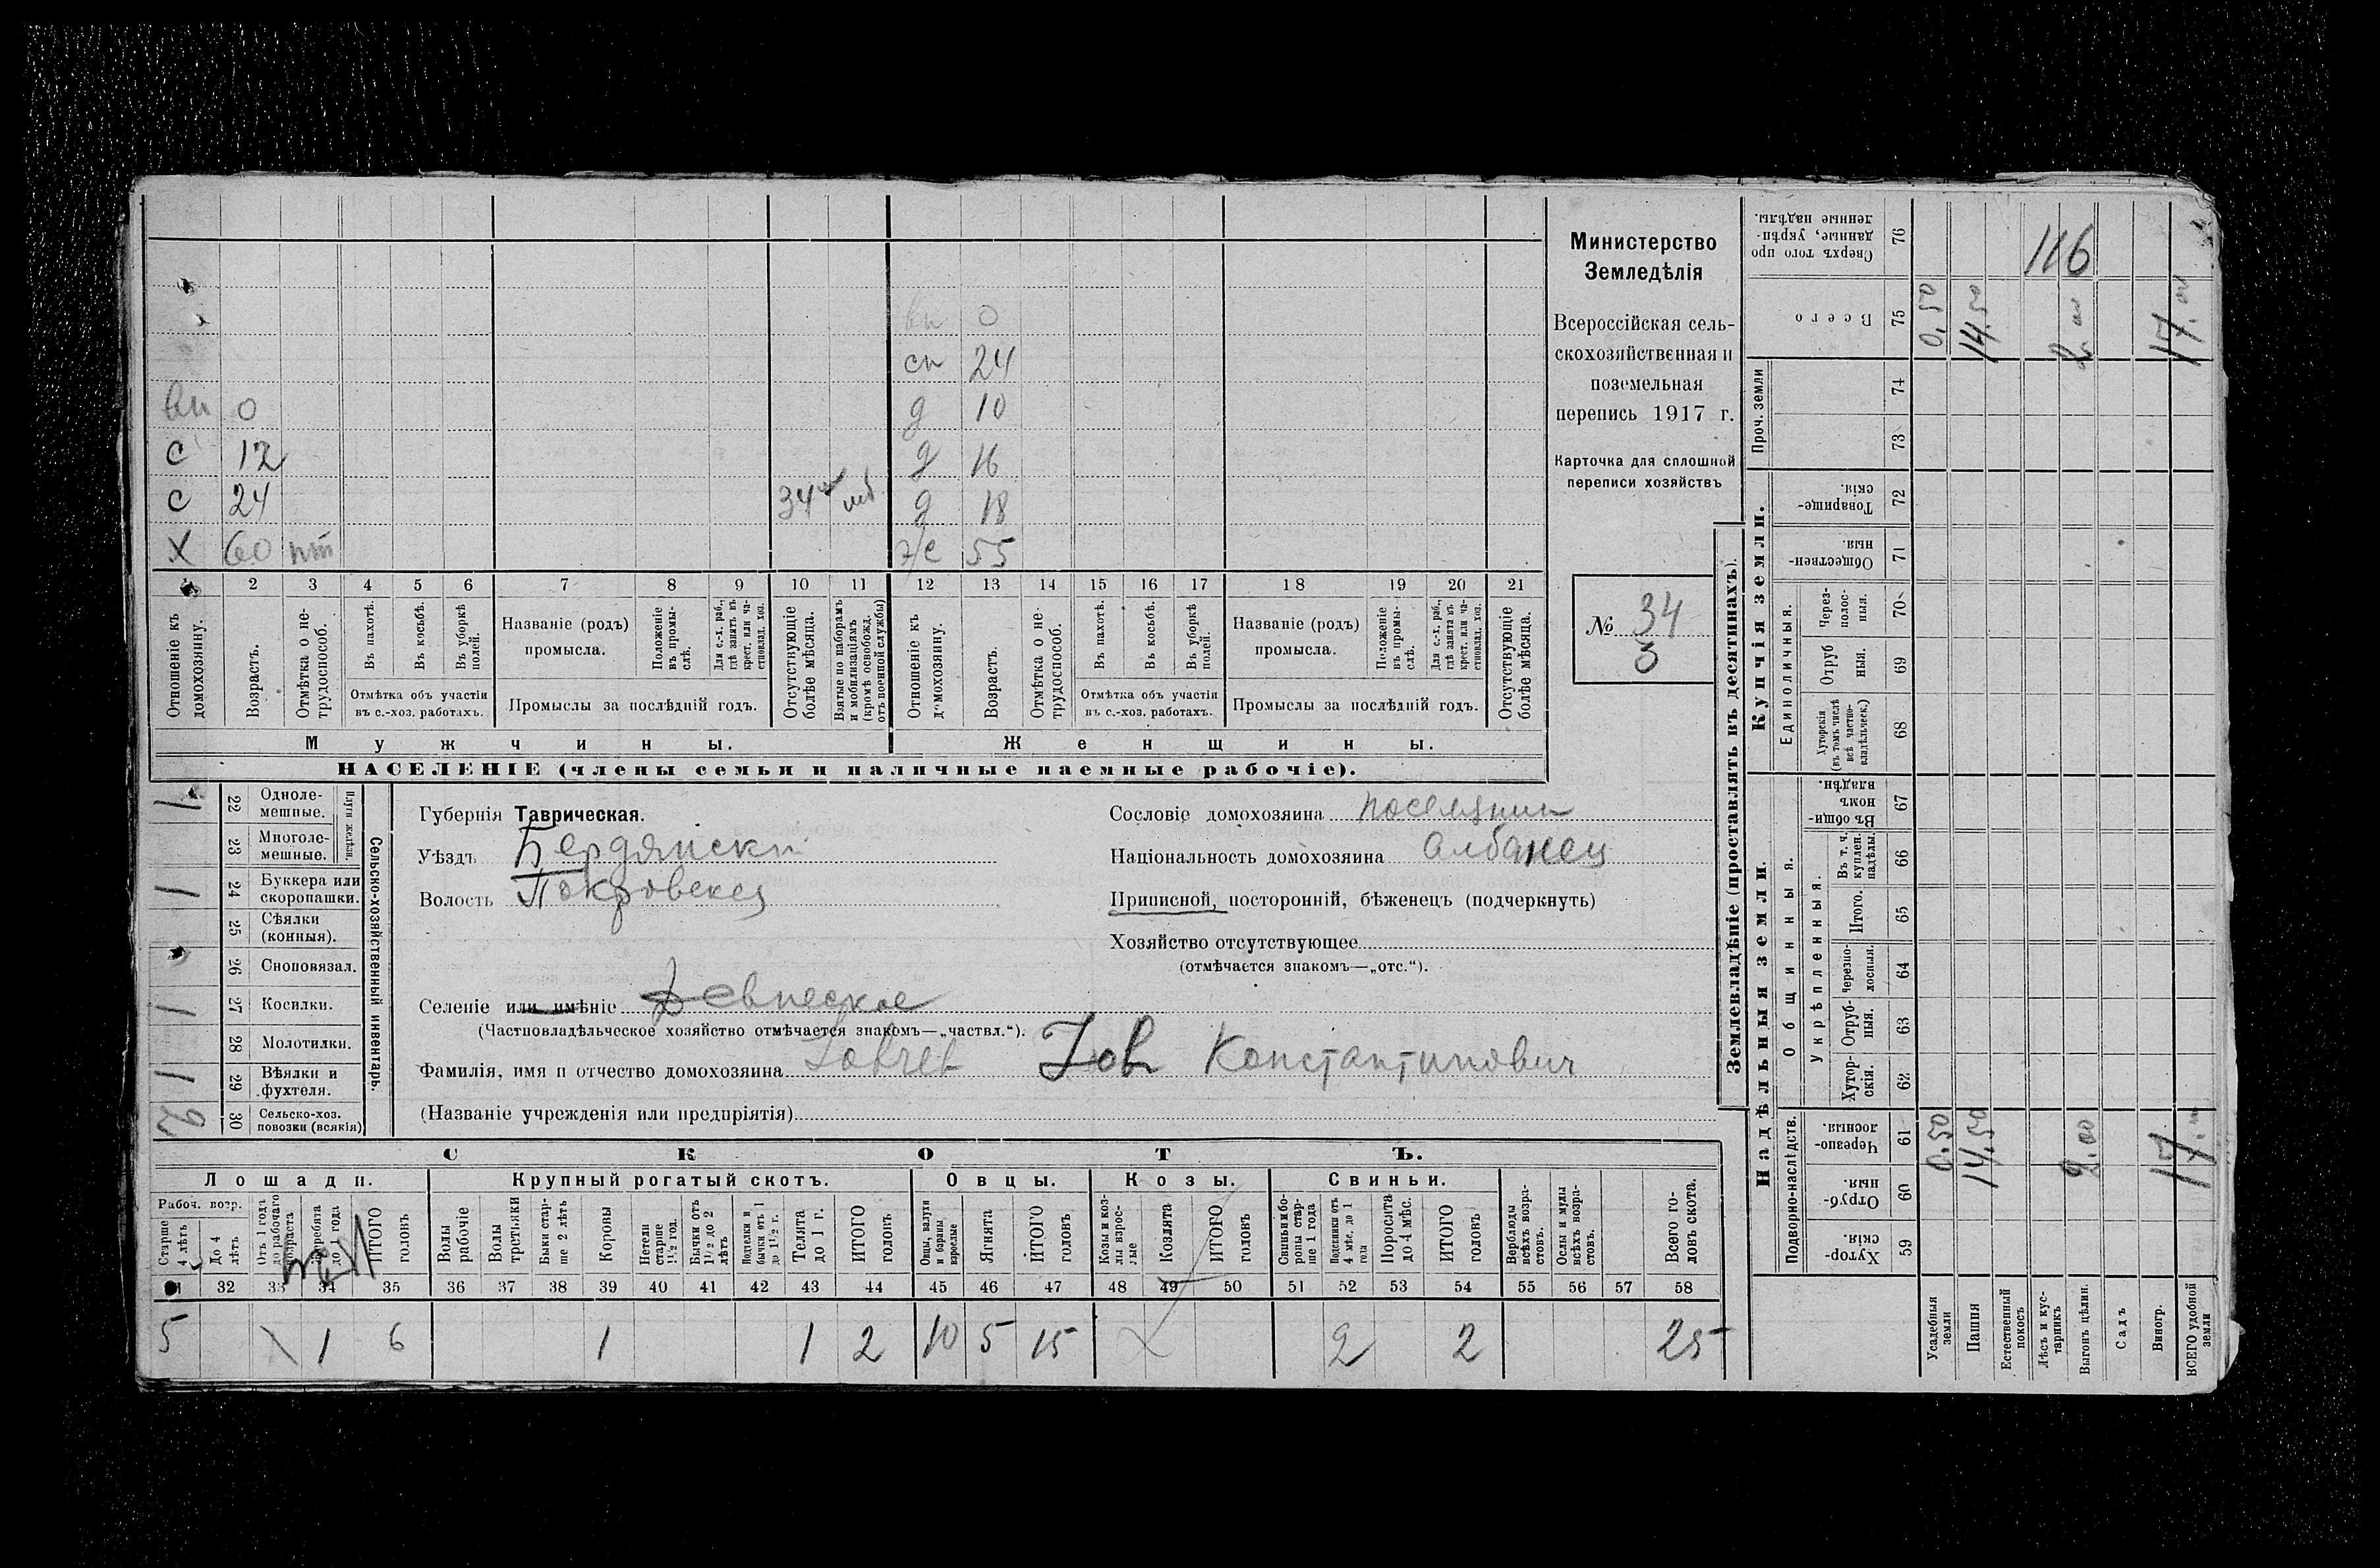 Министерство
Земледѣлія
Всероссійская сель-
скохозяйственная и
поземельная
перепись 1917 г.
Карточка для сплошной
переписи хозяйствъ
№ 34
вп 0
сп 24
вп 0 д 10
с 12 д 16
с 24 34 д 18
х 60 пт ж 55
1 2 3 4 5 6 7 8 9 10 11 12 13 14 15 16 17 18 19 20 21
Отношеніе къ домохозяину.
Возрастъ.
Отмѣтка о не- трудоспособ.
Въ пахотѣ.
Въ косьбѣ.
Въ уборкѣ полей.
Отмѣтка объ участіи въ с.-хоз. работахъ.
Названіе (родъ) промысла.
Положеніе въ промы- слѣ.
Для с.-х. раб., гдѣ занятъ въ крест. или ча- стновлад. хоз.
Промыслы за послѣдній годъ.
Отсутствующіе болѣе мѣсяца.
Взятые по наборамъ и мобилизаціямъ (кромѣ освобожд. отъ военной службы)
Отношеніе къ домохозяину.
Возрастъ.
Отмѣтка о не- трудоспособ.
Въ пахотѣ.
Въ косьбѣ.
Въ уборкѣ полей.
Отмѣтка объ участіи въ с.-хоз. работахъ.
Названіе (родъ) промысла.
Положеніе въ промы- слѣ.
Для с.-х. раб., гдѣ занята въ крест. или ча- стновлад. хоз.
Промыслы за послѣдній годъ.
Отсутствующіе болѣе мѣсяца.
Мужчины. Женщины.
НАСЕЛЕНІЕ (члены семьи и наличные наемные рабочіе).
1 22 Одноле- мешные.
23 Многоле- мешные.
Плуги желѣзн.
1 24 Буккера или скоропашки.
25 Сѣялки (конныя).
26 Сноповязал.
1 27 Косилки.
28 Молотилки.
1 29 Вѣялки и фухтеля.
2 30 Сельско-хоз. повозки (всякія)
Сельско-хозяйственный инвентарь.
Губернія Таврическая.
Уѣздъ Бердянски
Волость Покровская
Селеніе или имѣніе Девнеское
(Частновладѣльческое хозяйство отмѣчается знакомъ—„частвл.“).
Фамилія, имя и отчество домохозяина Товчев Іов Константинович
(Названіе учрежденія или предпріятія)
Сословіе домохозяина поселянин
Національность домохозяина Албанец
Приписной, посторонній, бѣженецъ (подчеркнуть)
Хозяйство отсутствующее
(отмѣчается знакомъ—„отс.“).
СКОТЪ.
Лошади. Крупный рогатый скотъ. Овцы. Козы. Свиньи.
Рабоч. возр.
Старше 4 лѣтъ
До 4 лѣтъ
Отъ 1 года до рабочаго возраста
Жеребята до 1 года
ИТОГО головъ
Волы рабочіе
Волы третьяки
Быки стар- ше 2 лѣтъ
Коровы
Нетели старше 1½ год.
Бычки отъ 1½ до 2 лѣтъ
Подтелки и бычки отъ 1 до 1½ г.
Телята до 1 г.
ИТОГО головъ
Овцы, валухи и бараны взрослые
Ягнята
ИТОГО головъ
Козы и коз- лы взрос- лые
Козлята
ИТОГО головъ
Свиньи и бо- ровы стар- ше 1 года
Подсвинки отъ 4 мѣс. до 1 года
Поросята до 4 мѣс.
ИТОГО головъ
Верблюды всѣхъ возра- стовъ.
Ослы и мулы всѣхъ возра- стовъ.
Всего го- ловъ скота.
32 33 34 35 36 37 38 39 40 41 42 43 44 45 46 47 48 49 50 51 52 53 54 55 56 57 58
5 1 6 1 1 2 10 5 15 2 2 25
Землевладѣніе (проставлять въ десятинахъ).
Сверхъ того про данные, укрѣп- ленные надѣлы. 76 116
Всего 75 0.50 14.50 2.00 17.00
Проч. земли
74
73
Купчія земли.
Товарище- скія. 72
Обществен- ныя. 71
Единоличныя.
Через- полос- ныя. 70
Отруб ныя. 69
Хуторскія (въ томъ числѣ всѣ частно- владѣльческ.) 68
Надѣльныя земли.
Общинныя.
Въ общи- номъ владѣн. 67
Укрѣпленныя.
Въ т. ч. куплен. надѣлы. 66
Итого. 65
Черезпо- лосныя. 64
Отруб- ныя. 63
Хутор- скія. 62
Подворно-наслѣдств.
Черезпо- лосныя. 61 0.50 14.50 2.00 17.
Отруб- ныя. 60
Хутор- скія. 59
Усадебныя земли
Пашня
Естественный покосъ
Лѣсъ и кус- тарникъ
Выгонъ цѣлин.
Садъ
Виногр.
ВСЕГО удобной земли